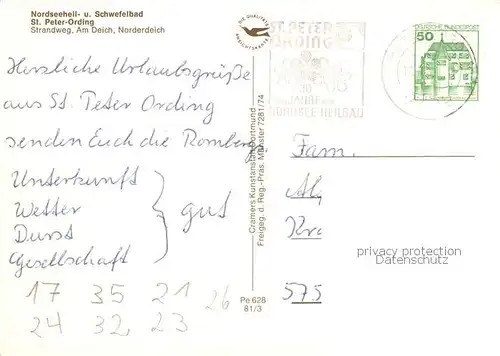 Nordseeheil- u. Schwefelbad
St. Peter-Ording
Strandweg, Am Deich, Norderdeich
DIE QUALITÄTS
ANSICHTSKARTE
ST. PETER
ORDING
JAHRE
NORDSEE HEILBAD
DEUTSCHE BUNDESPOST
50
Herzliche Urlaubsgrüße
aus St. Peter Ording
senden Euch die Romberg
Unterkunft
Wetter
Durst
Gesellschaft
gut
17 35 21 26
24 32, 23
Cramers Kunstanstalt Dortmund
Freigeg. d. Reg.-Präs. Münster 7281/74
Pe 628
81/3
Fam.
Al
Kr
575
privacy protection
Datenschutz